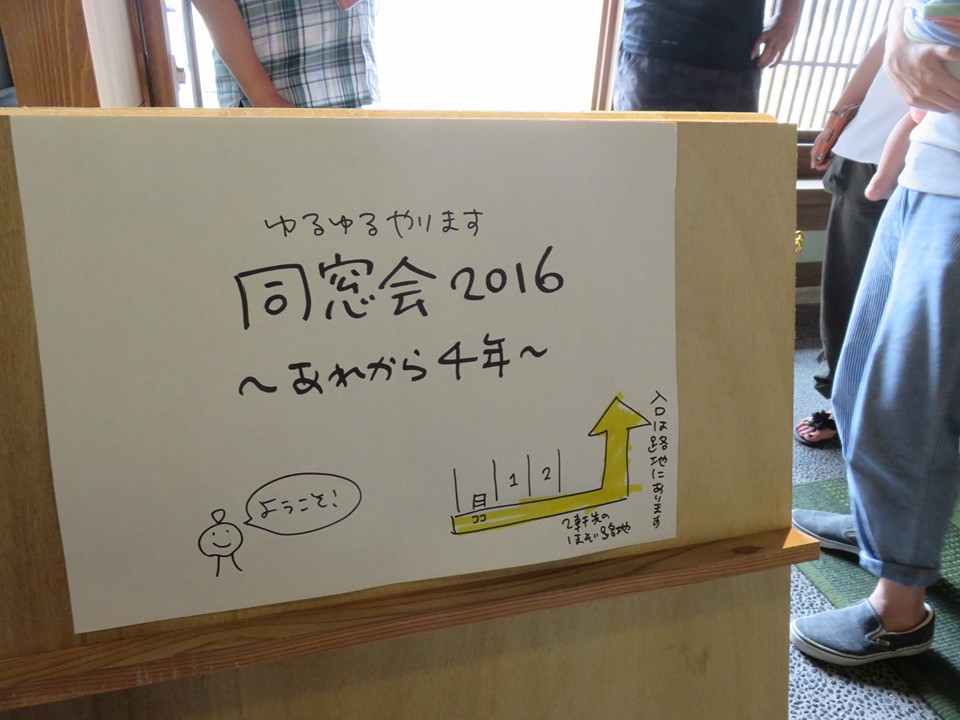 ゆるゆるやります
同窓会2016
～あれから4年～
ようこそ!
1
2
ココ
2軒先の
ほそい路地
入口は路地にあります